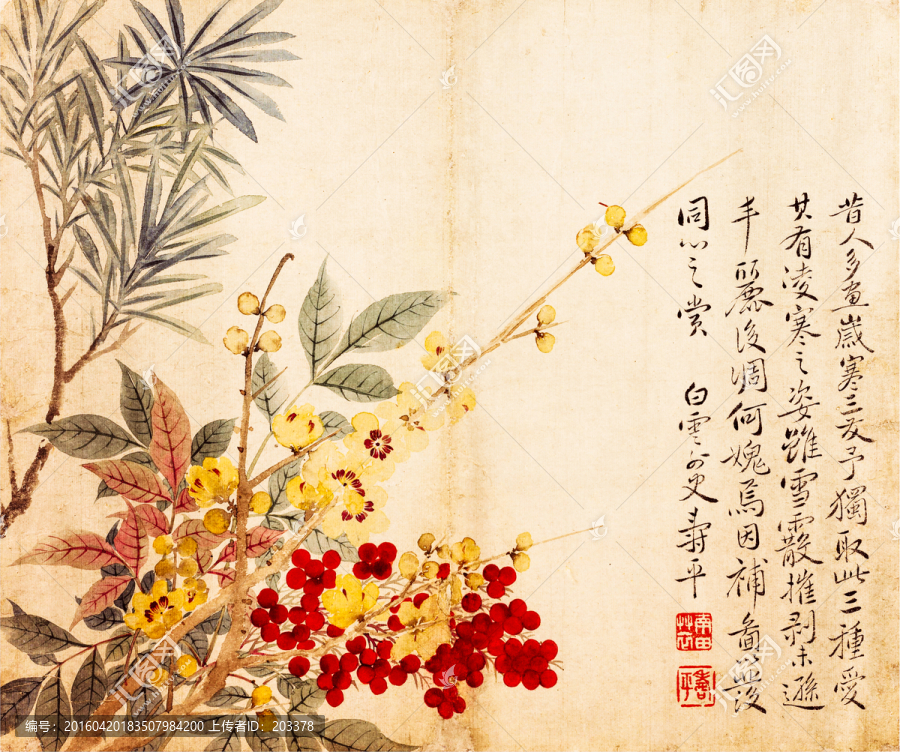 昔人多畫歲寒三友予獨取此三種愛
其有凌寒之姿雖雪霰摧剥未遜
丰麗後凋何媿焉因補圖以後
同心之赏
白雲外史壽平
南田
壽平
汇图网
编号: 20160420183507984200 上传者ID: 203378